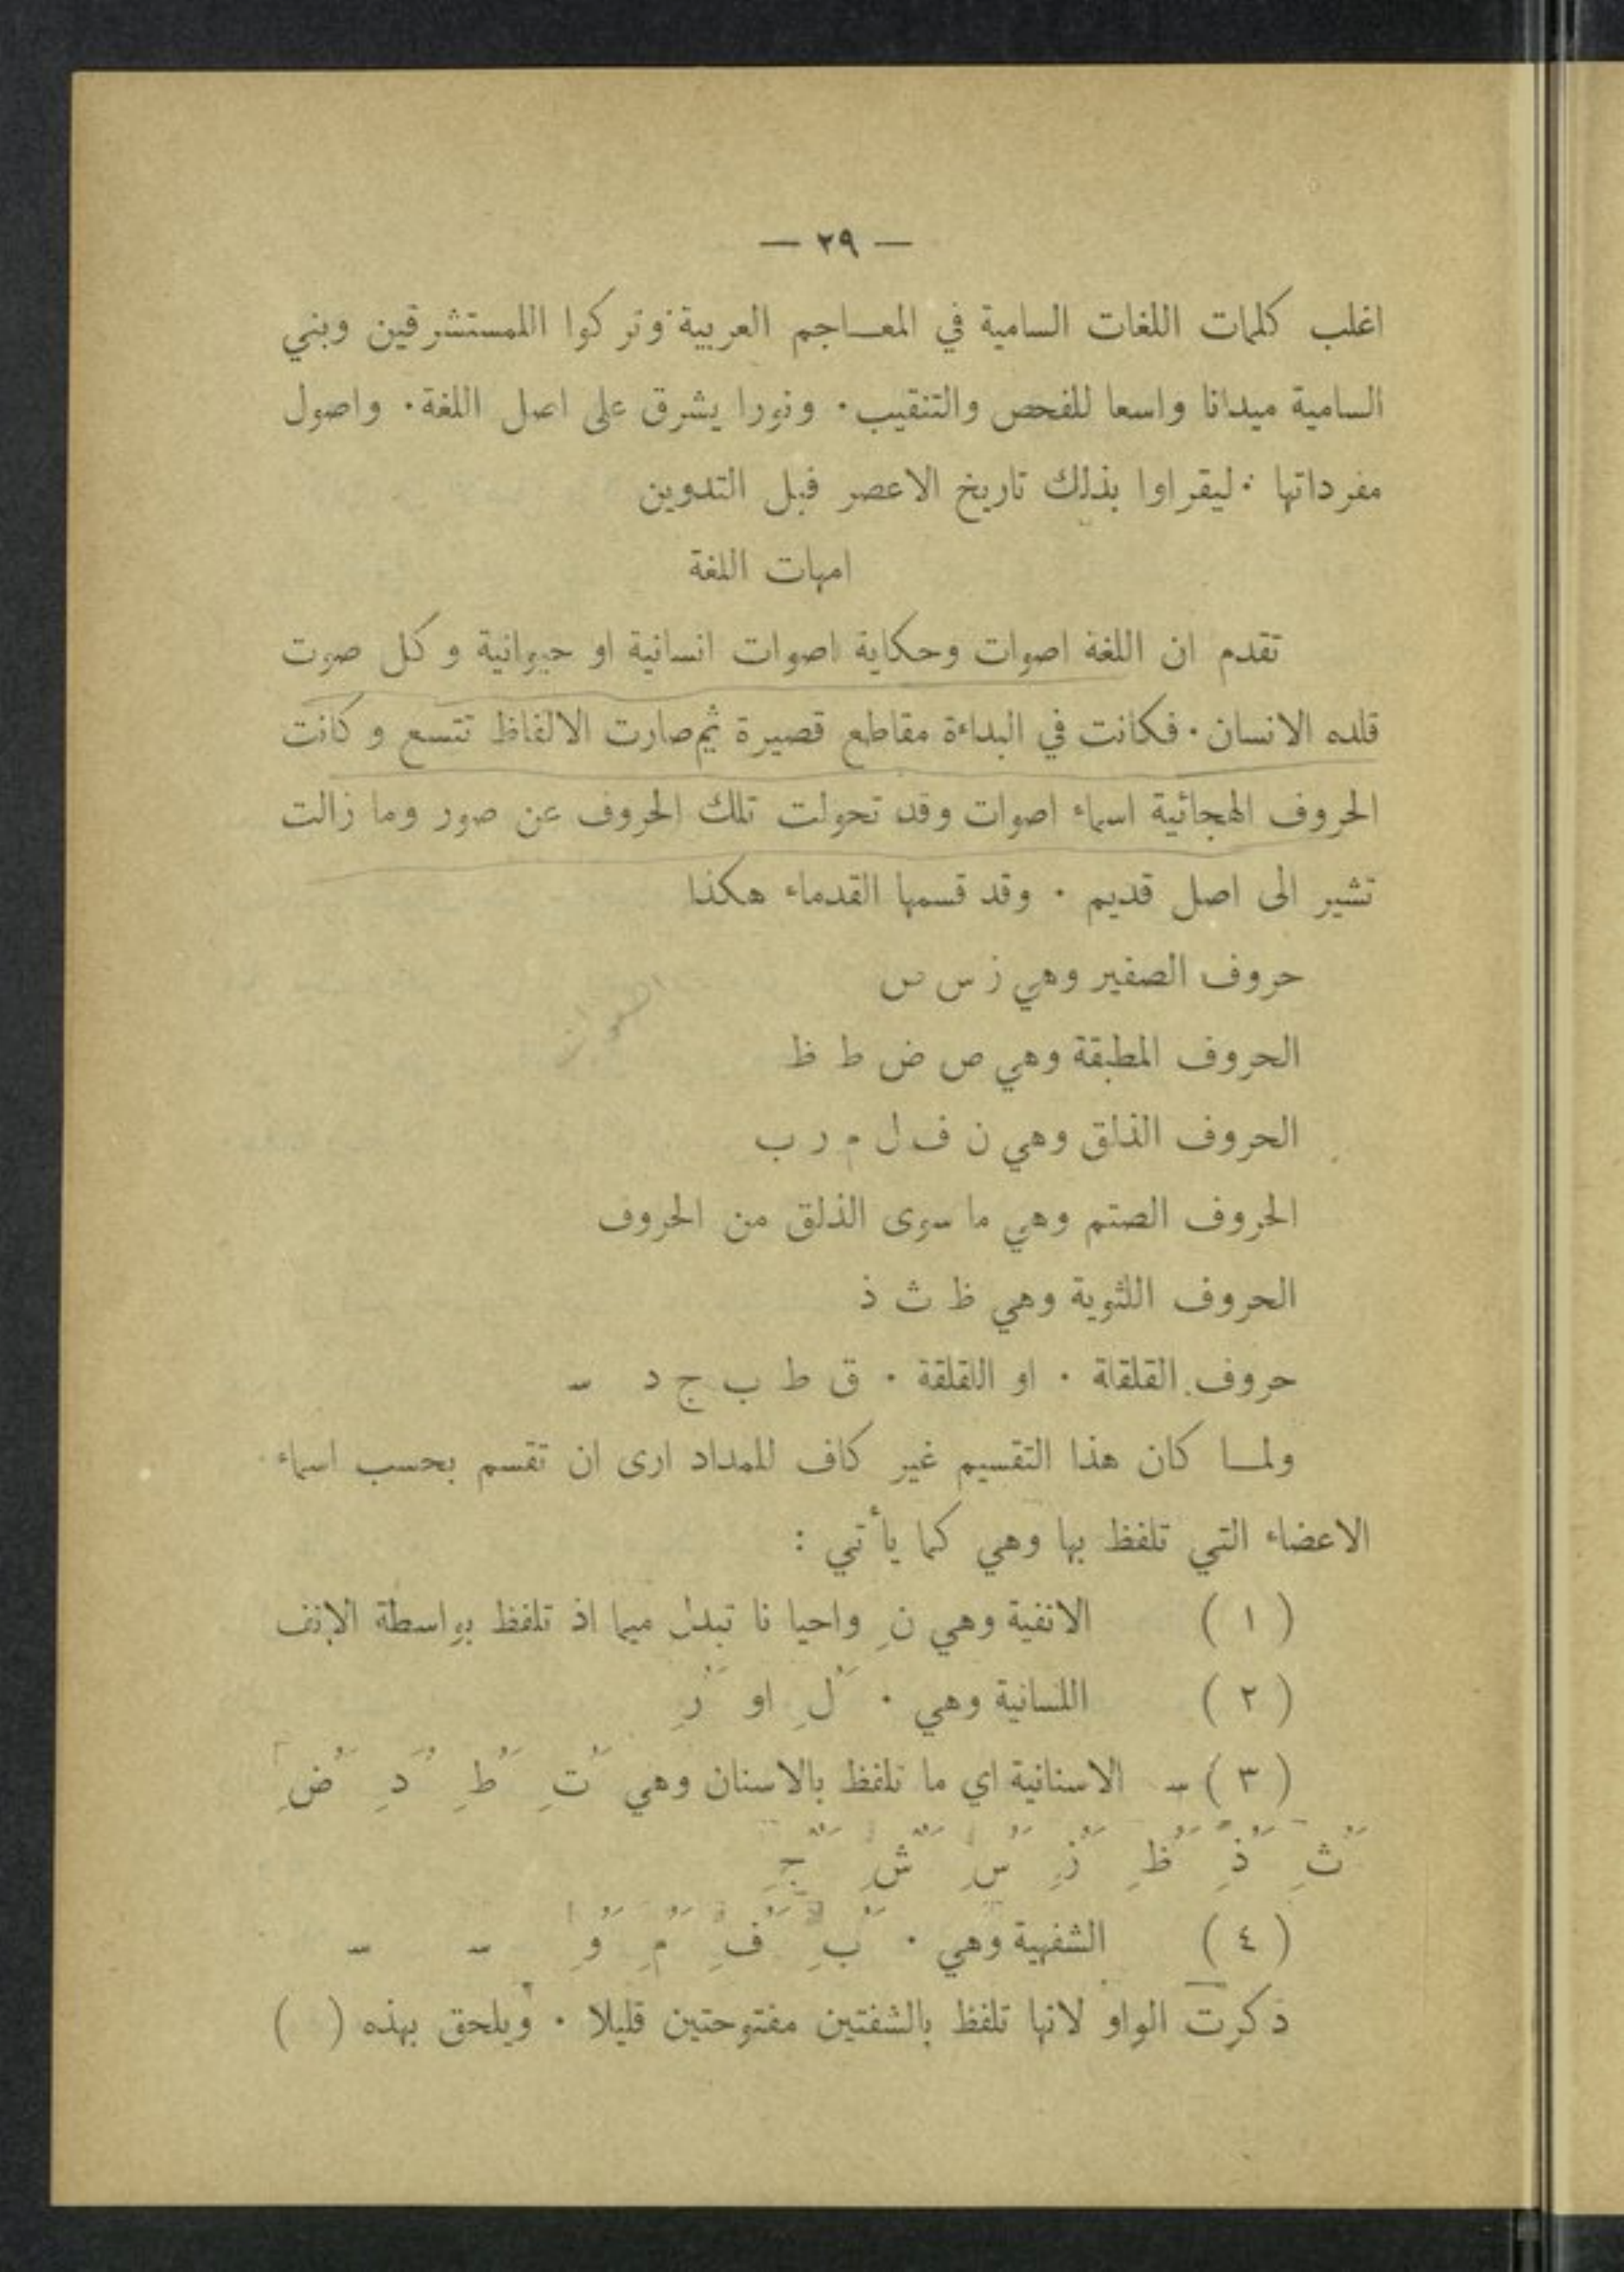 — ٢٩ —
اغلب كلمات اللغات السامية في المعـاجم العربية وتركوا اللمستشرقين وبني
السامية ميدانا واسعا للفحص والتنقيب. ونورا يشرق على اصل اللغة. واصول
مفرداتها . ليقراوا بذلك تاريخ الاعصر قبل التدوين
امهات اللغة
تقدم ان اللغة اصوات وحكاية اصوات انسانية او حيوانية وكل صوت
قلده الانسان. فكانت في البداءة مقاطع قصيرة ثم صارت الالفاظ تتسع وكانت
الحروف الهجائية اسماء اصوات وقد تحولت تلك الحروف عن صور وما زالت
تشير الى اصل قديم . وقد قسمها القدماء هكذا
حروف الصفير وهي ز س ص
اصوات
الحروف المطبقة وهي ص ض ط ظ
الحروف الذلق وهي ن ف ل م ر ب
الحروف الصتم وهي ما سوى الذلق من الحروف
الحروف اللثوية وهي ظ ث ذ
حروف القلقلة . او اللقلقة . ق ط ب ج د
ولمـا كان هذا التقسيم غير كاف للمداد ارى ان تقسم بحسب اسماء
الاعضاء التي تلفظ بها وهي كما يأتي :
( ١ ) الانفية وهي نِ واحيا نا تبدل ميما اذ تلفظ بواسطة الانف
( ٢ ) اللسانية وهي . لَُِ او رَُِ
( ٣ ) – الاسنانية اي ما تلفظ بالاسنان وهي تَُِ طَُِ دَُِ ضَُِ
ثَُِ ذَُِ ظَُِ زَُِ سَُِ شَُِ جَُِ
( ٤ ) الشفهية وهي . بَُِ فَُِ مَُِ وَُِ – –
ذكرت الواو لانها تلفظ بالشفتين مفتوحتين قليلا . ويلحق بهذه ( )